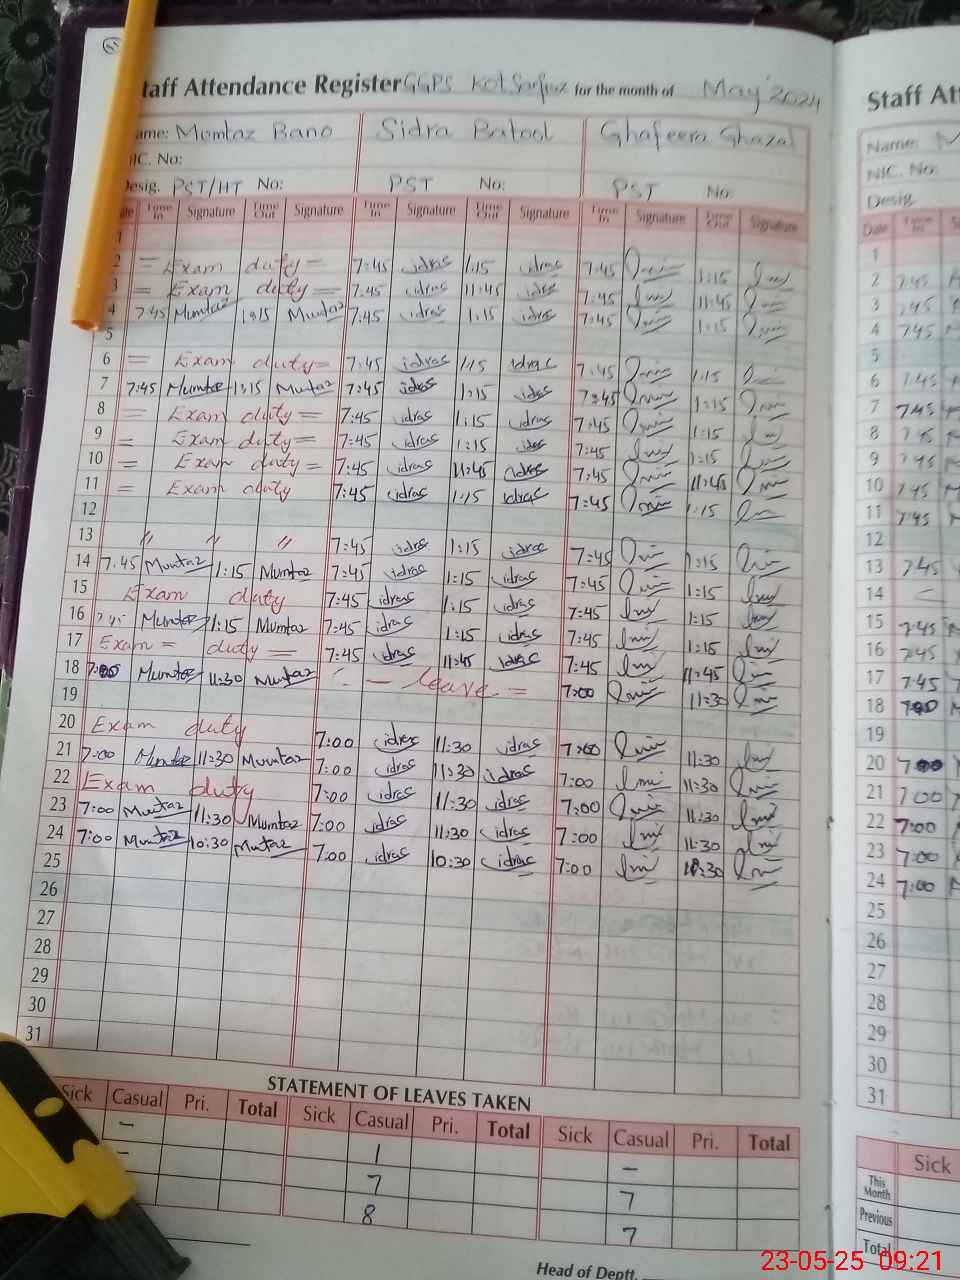 Staff Attendance Register GGPS Kot Sarfraz for the month of May 2024
Name: Momtaz Bano Sidra Batool Ghafeera Ghazal
NIC. No:
Desig. PST/HT No: PST No: PST No:
Date Time In Signature Time Out Signature Time In Signature Time Out Signature Time In Signature Time Out Signature
1
2 = Exam duty = 7:45 idras 1:15 idras 7:45 1:15
3 = Exam duty = 7:45 idras 11:45 idras 7:45 11:45
4 7:45 Mumtaz 1:15 Mumtaz 7:45 idras 1:15 idras 7:45 1:15
5
6 = Exam duty = 7:45 idras 1:15 idras 7:45 1:15
7 7:45 Mumtaz 1:15 Mumtaz 7:45 idras 1:15 idras 7:45 1:15
8 = Exam duty = 7:45 idras 1:15 idras 7:45 1:15
9 = Exam duty = 7:45 idras 1:15 idras 7:45 1:15
10 = Exam duty = 7:45 idras 11:45 idras 7:45 11:45
11 = Exam duty 7:45 idras 1:15 idras 7:45 1:15
12
13 " " " 7:45 idras 1:15 idras 7:45 1:15
14 7:45 Mumtaz 1:15 Mumtaz 7:45 idras 1:15 idras 7:45 1:15
15 Exam duty 7:45 idras 1:15 idras 7:45 1:15
16 7:45 Mumtaz 1:15 Mumtaz 7:45 idras 1:15 idras 7:45 1:15
17 Exam = duty = 7:45 idras 11:45 idras 7:45 11:45
18 7:00 Mumtaz 11:30 Mumtaz - leave = 7:00 11:30
19
20 Exam duty 7:00 idras 11:30 idras 7:00 11:30
21 7:00 Mumtaz 11:30 Mumtaz 7:00 idras 11:30 idras 7:00 11:30
22 Exam duty 7:00 idras 11:30 idras 7:00 11:30
23 7:00 Mumtaz 11:30 Mumtaz 7:00 idras 11:30 idras 7:00 11:30
24 7:00 Mumtaz 10:30 Mumtaz 7:00 idras 10:30 idras 7:00 10:30
25
26
27
28
29
30
31
STATEMENT OF LEAVES TAKEN
Sick Casual Pri. Total Sick Casual Pri. Total Sick Casual Pri. Total
- 1 -
- 7 7
8 7
Head of Deptt.
Staff Att
Name: M
NIC. No:
Desig.
Date Time In
1
2 7:45
3 7:45
4 7:45
5
6 7:45
7 7:45
8 7:45
9 7:45
10 7:45
11 7:45
12
13 7:45
14 -
15 7:45
16 7:45
17 7:45
18 7:00
19
20 7:00
21 7:00
22 7:00
23 7:00
24 7:00
25
26
27
28
29
30
31
Sick
This Month
Previous
Total
23-05-25 09:21